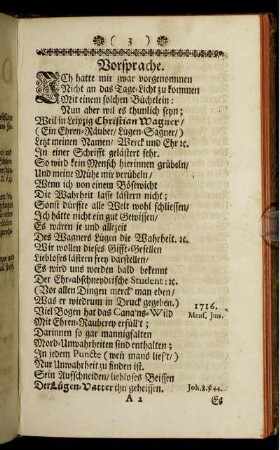 ( 3 )
Vorsprache.
Ich hatte mir zwar vorgenommen
Nicht an das Tage-Licht zu kommen
Mit einem solchen Büchelein:
Nun aber wil es thumlich seyn;
Weil in Leipzig Christian Wagner/
(Ein Ehren-Räuber/ Lügen-Sagner/)
Letzt meinen Nahmen/ Werck und Ehr ꝛc.
In einer Schrifft gelästert sehr.
So wird kein Mensch hierinnen grübeln/
Und meine Mühe mir verübeln/
Wenn ich von einem Bösewicht
Die Wahrheit lasse lästern nicht;
Sonst dürffte alle Welt wohl schliessen/
Ich hätte nicht ein gut Gewissen/
Es wären je und allezeit
Des Wagners Lügen die Wahrheit. ꝛc.
Wir wollen dieses Gifft-Gesellen
Liebloses lästern frey darstellen/
Es wird uns werden bald bekennt
Der Ehr-abschneydische Student: ꝛc.
(Vor allen Dingen merck' man eben/
Was er wiedrum in Druck gegeben.)
Viel Bogen hat das Cana'ns-Wild
1716.
Mens. Jun.
Mit Ehren-Rauberey erfüll't;
Darinnen so gar mannigfalten
Mord-Unwahrheiten sind enthalten;
In jedem Puncte (weñ mans lies't/)
Nur Unwahrheit zu finden ist.
Sein Aufschneiden/ liebloses Beissen
Der Lügen-Vatter ihn geheissen.
Joh. 8. v. 44.
A 2
Es